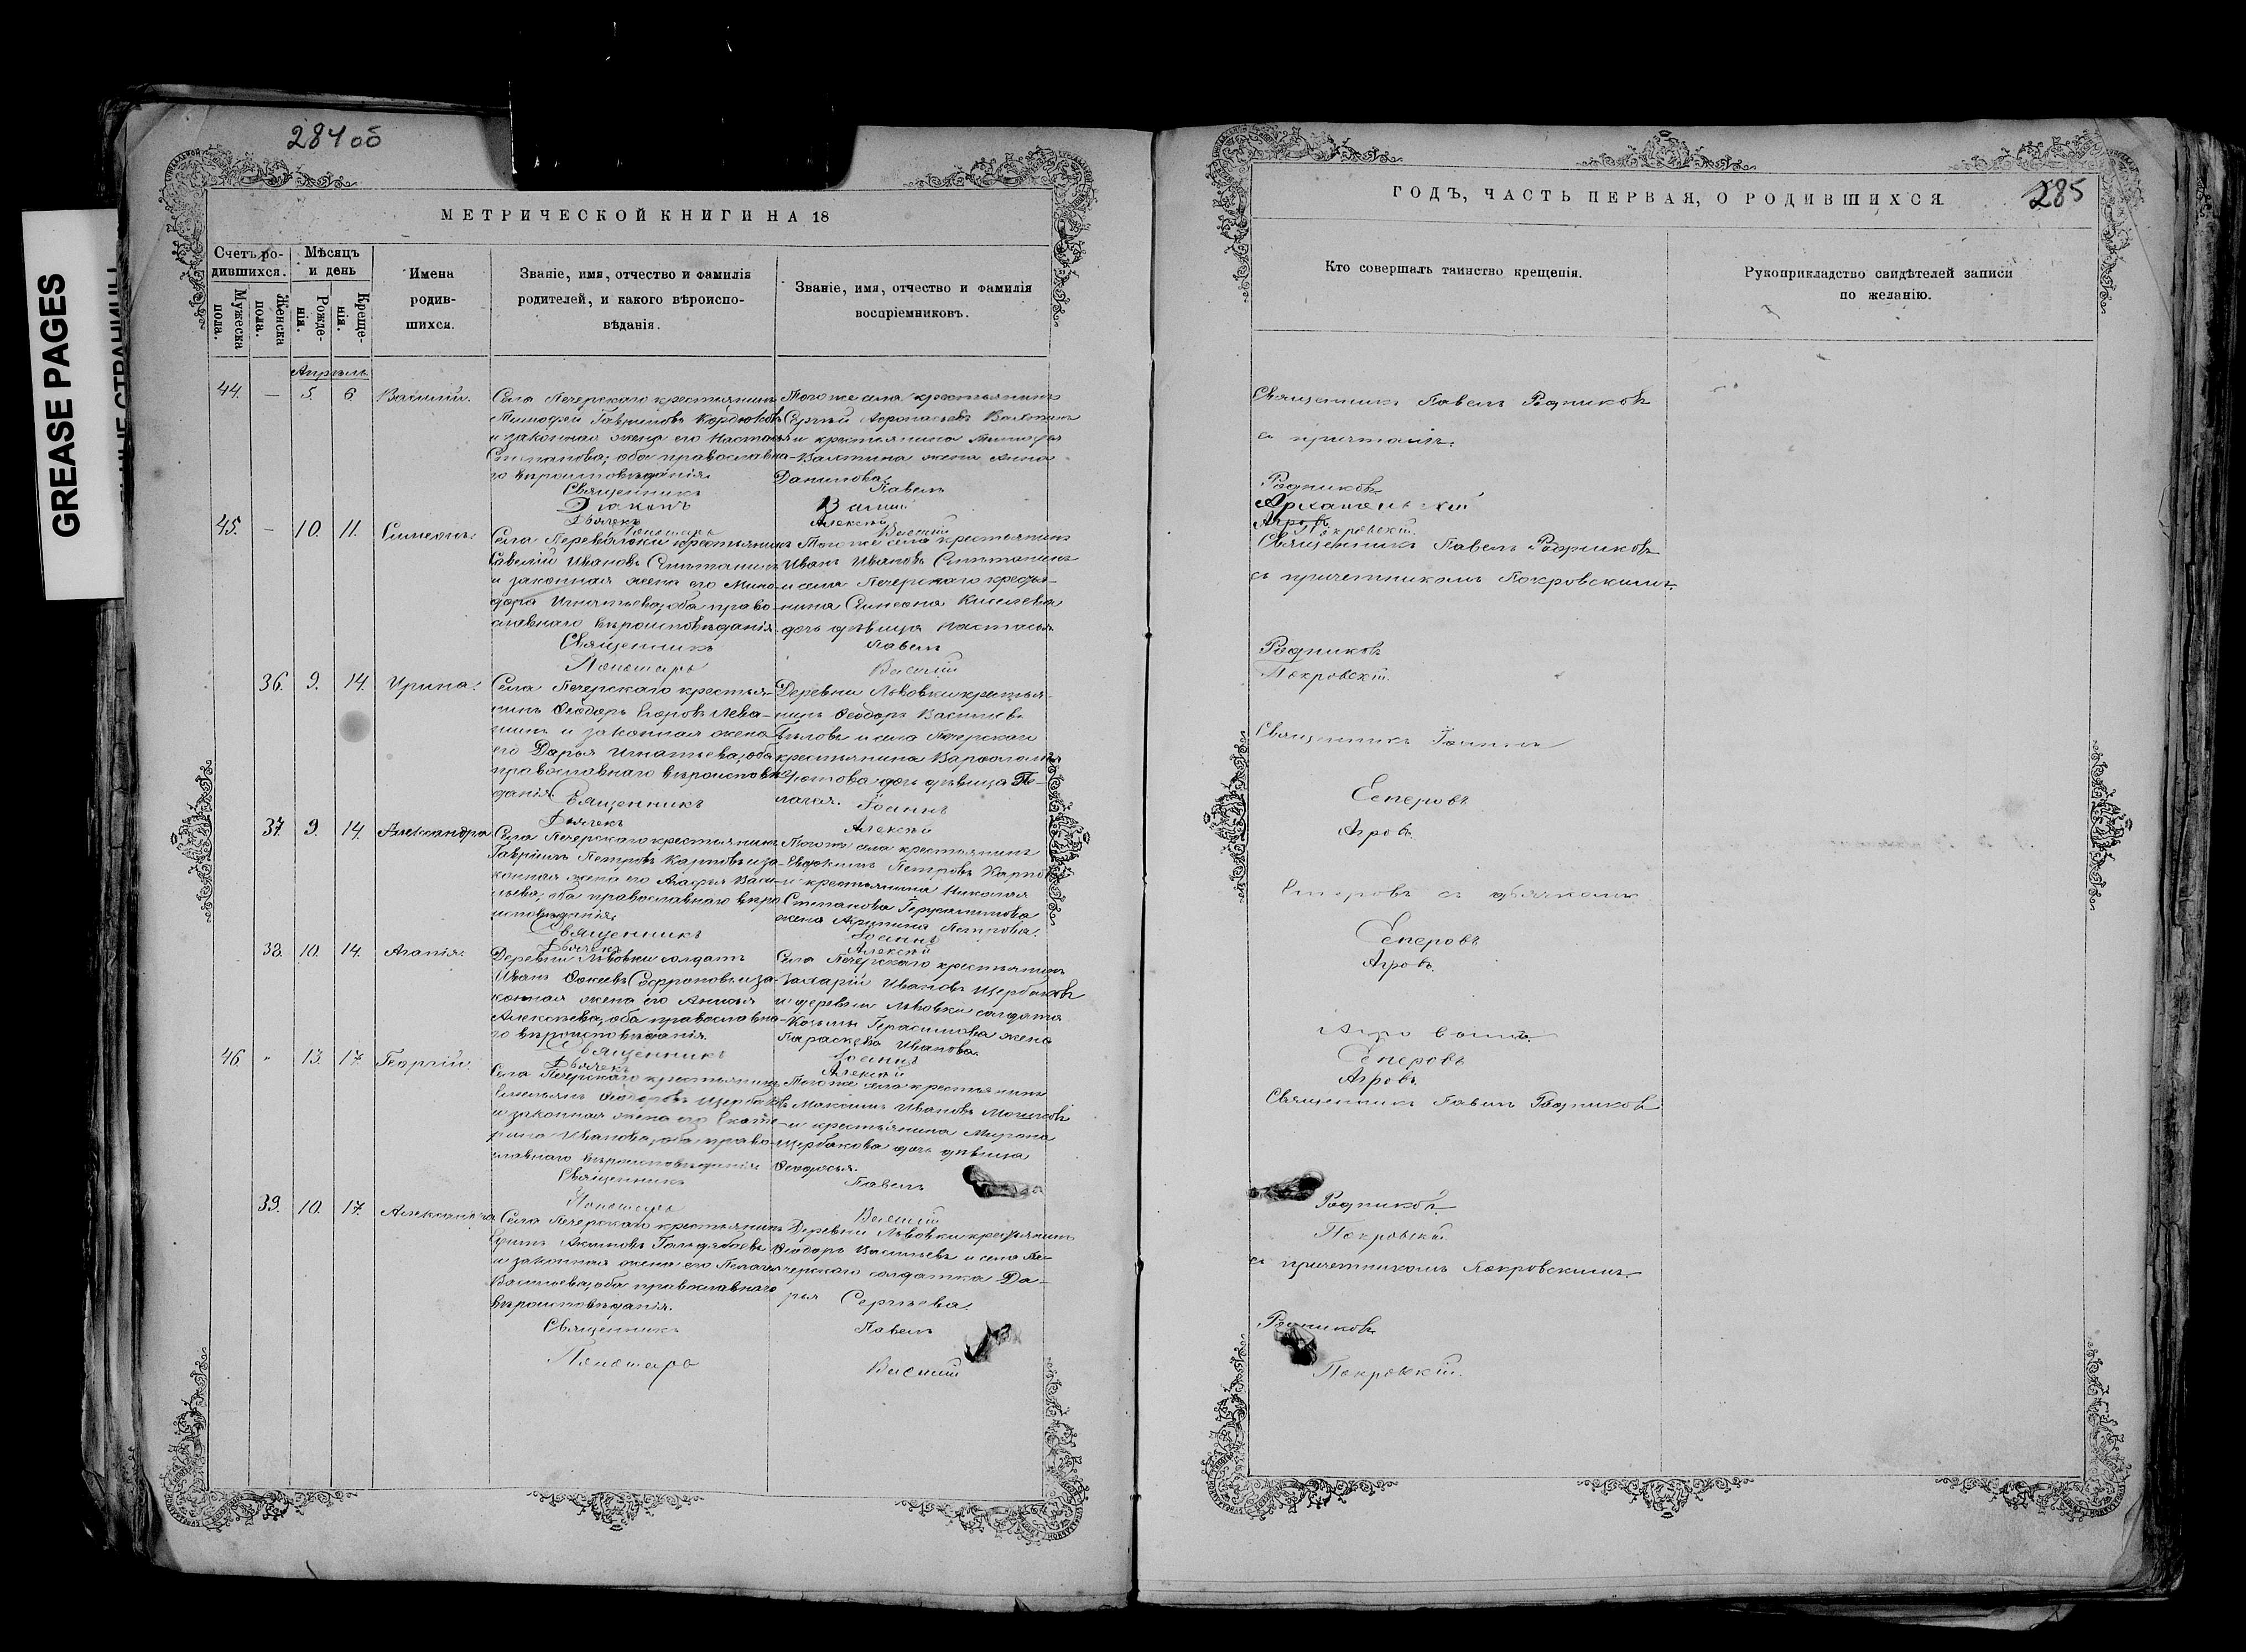 284 об
МЕТРИЧЕСКОЙ КНИГИ НА 18
Счетъ ро-
дившихся.
Мужеска
пола.
Женска
пола.
Мѣсяцъ
и день
Рожде-
нія.
Креще-
нія.
Имена
родив-
шихся.
Званіе, имя, отчество и фамилія
родителей, и какого вѣроиспо-
вѣданія.
Званіе, имя, отчество и фамилія
воспріемниковъ.
Апрѣль
44. — 5. 6. Василій.
Села Печерскаго крестьянинъ
Тимофей Гавриловъ
и законная жена его Настасья
Степанова; оба православна-
го вѣроисповѣданія.
Того же села крестьянинъ
Сергѣй
и крестьянина
жена Анна
Данилова.
Священникъ Павелъ
Діаконъ
Дьячекъ Алексѣй
Пономарь Василій
45. — 10. 11. Симеонъ.
Села Переволоки крестьянинъ
Савелій Ивановъ
и законная жена его Мино-
дора Игнатьева, оба право-
славнаго вѣроисповѣданія.
Того же села крестьянинъ
Иванъ Ивановъ
и села Печерскаго крестья-
нина Симеона Киселева
дочь дѣвица Настасья
Священникъ Павелъ
Пономарь Василій
36. 9. 14. Ирина.
Села Печерскаго крестья-
нинъ Ѳеодоръ Егоровъ Лева-
шинъ и законная жена
его Дарья Игнатьева, оба
православнаго вѣроисповѣ-
данія.
Деревни Львовки крестья-
нинъ Ѳеодоръ Васильевъ
Бѣловъ и села Печерскаго
крестьянина Варѳоломея
дочь дѣвица Пе-
лагея.
Священникъ Іоаннъ
Дьячекъ Алексѣй
37. 9. 14. Александра
Села Печерскаго крестьянинъ
Гавріилъ Петровъ Карповъ и за-
конная жена его Агафья Васи-
льева, оба православнаго вѣро-
исповѣданія.
Того же села крестьянинъ
Евдокимъ Петровъ Карповъ
и крестьянина Николая
Степанова
жена Агрипина Петрова.
Священникъ Іоаннъ
Дьячекъ Алексѣй
38. 10. 14. Агапія.
Деревни Львовки солдатъ
Иванъ Софроновъ и за-
конная жена его Анисья
Алексѣева, оба православна-
го вѣроисповѣданія.
Села Печерскаго крестьянинъ
Захарій Ивановъ Щербаковъ
и деревни Львовки солдата
Козьмы Герасимова жена
Параскева Иванова.
Священникъ Іоаннъ
Дьячекъ Алексѣй
46. " 13. 17. Георгій.
Села Печерскаго крестьянинъ
Емельянъ Ѳеодоровъ Щербаковъ
и законная жена его Екате-
рина Иванова, оба право-
славнаго вѣроисповѣданія
Того же села крестьянинъ
Максимъ Ивановъ
и крестьянина Мирона
Щербакова дочь дѣвица
Ѳеодосья.
Священникъ Павелъ
Пономарь Василій
39. 10. 17. Александра
Села Печерскаго крестьянинъ
Акимовъ
и законная жена его Пелагея
Васильева, оба православнаго
вѣроисповѣданія.
Деревни Львовки крестьянинъ
Ѳеодоръ Васильевъ и села Пе-
черскаго солдатка Да-
рья Сергѣева.
Священникъ Павелъ
Пономарь Василій
ГОДЪ, ЧАСТЬ ПЕРВАЯ, О РОДИВШИХСЯ
285
Кто совершалъ таинство крещенія.
Рукоприкладство свидѣтелей записи
по желанію.
Священникъ Павелъ Родниковъ
съ причтомъ.
Родниковъ
Архангельскій
Агровъ
Покровскій.
Священникъ Павелъ Родниковъ
съ причетникомъ Покровскимъ.
Родниковъ
Покровскій.
Священникъ Іоаннъ
Сеперовъ
Агровъ
Сеперовъ съ дьячкомъ
Сеперовъ
Агровъ.
Агровымъ.
Сеперовъ
Агровъ.
Священникъ Павелъ Родниковъ
Родниковъ.
Покровскій
съ причетникомъ Покровскимъ.
Родниковъ
Покровскій.
GREASE PAGES